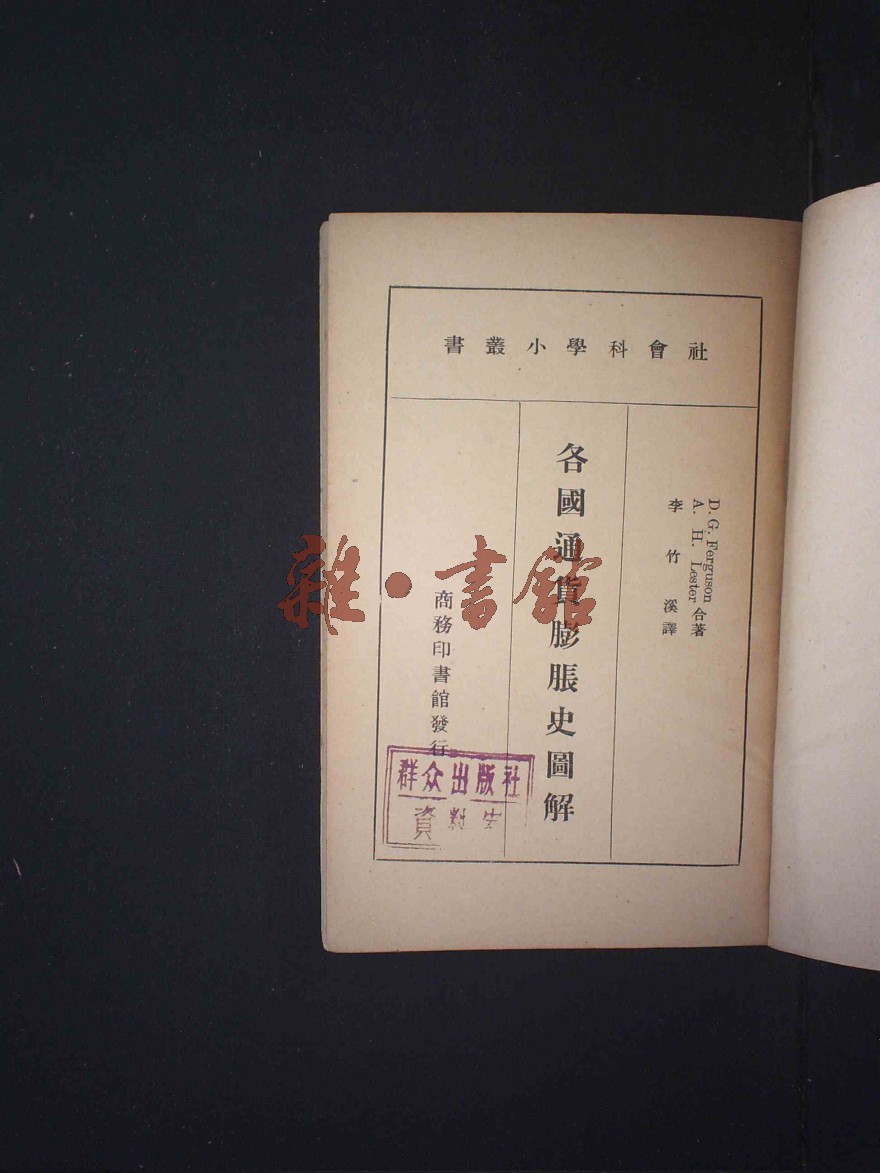 社會科學小叢書
D. G. Ferguson
A. H. Lester 合著
李竹溪譯
各國通貨膨脹史圖解
商務印書館發行
群众出版社
資料室
雜·書館